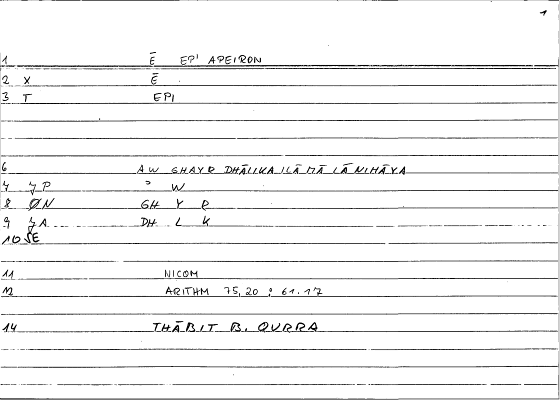 1
1 Ē EPI' APEIRON
2 X Ē
3 T EPI
6 AW GHAYR DHĀLIKA ILĀ MĀ LĀ NIHĀYA
7 ʒP ʾ W
8 ØN GH Y R
9 ʒA DH L K
10 SE
11 NICOM
12 ARITHM 75,20 : 61.17
14 THĀBIT B. QURRA